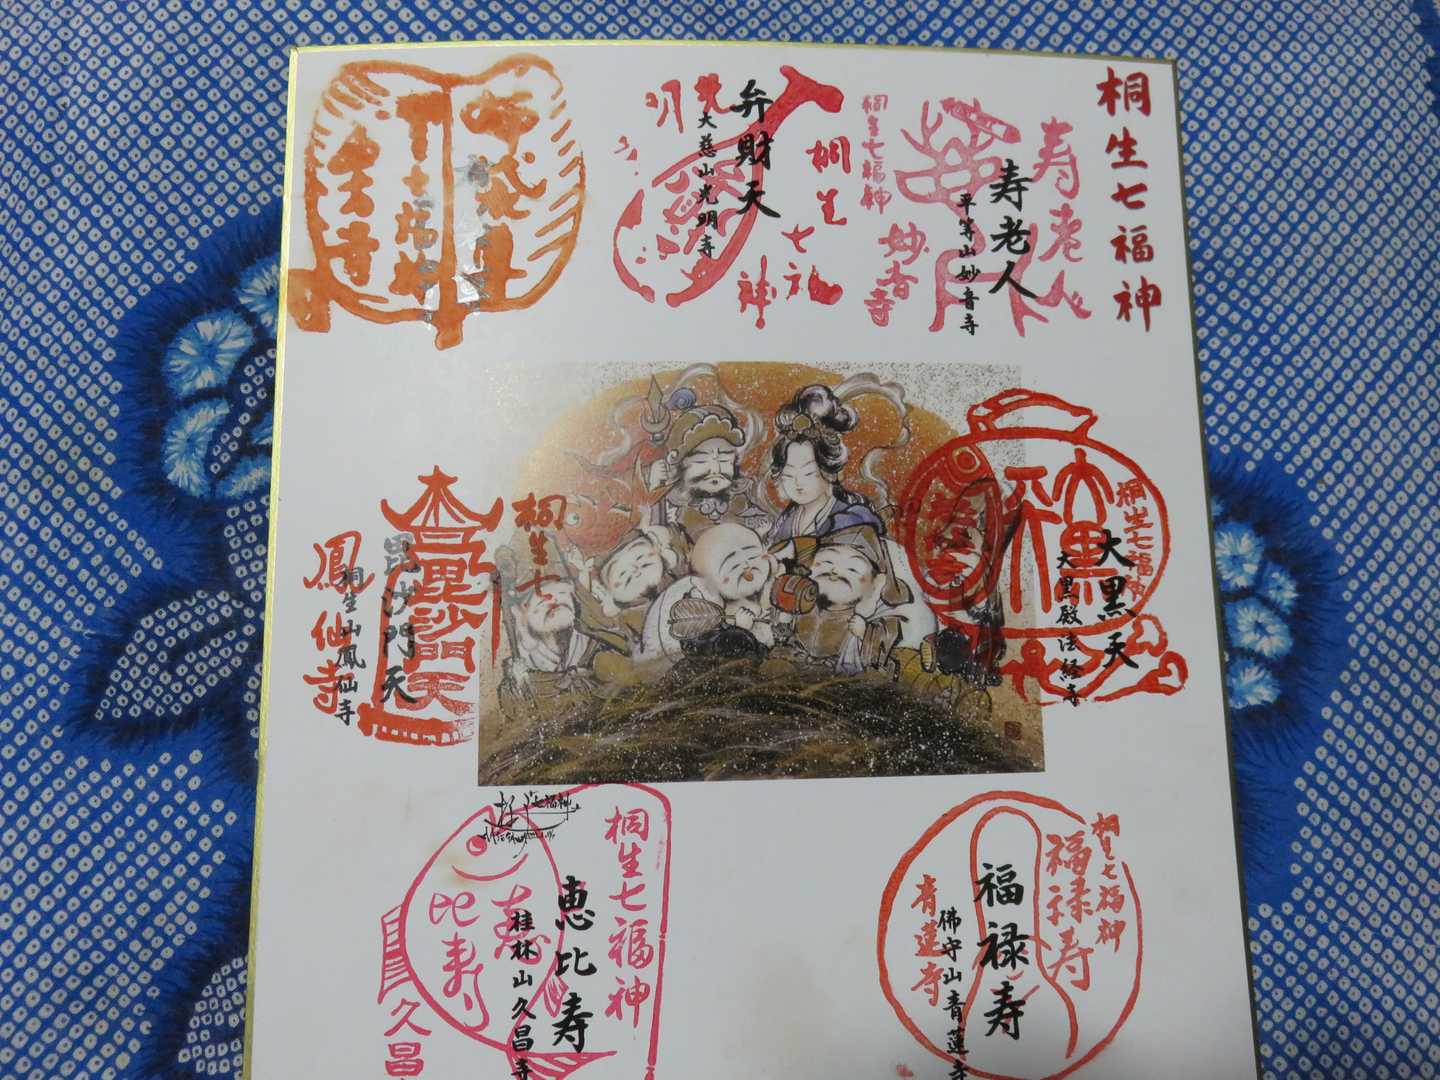 桐生七福神
寿老人
寿老人
平等山妙音寺
桐生七福神
妙音寺
弁財天
大慈山光明寺
光
明
桐生
七福
神
桐生七福神
福
大黒天
大黒殿法経寺
桐生七
毘沙門天
毘沙門天
桐生山鳳仙寺
鳳仙寺
桐生七福神
福禄寿
福禄寿
佛守山青蓮寺
青蓮寺
桐生七福神
恵比寿
桂林山久昌寺
恵
比寿
久昌
七福神